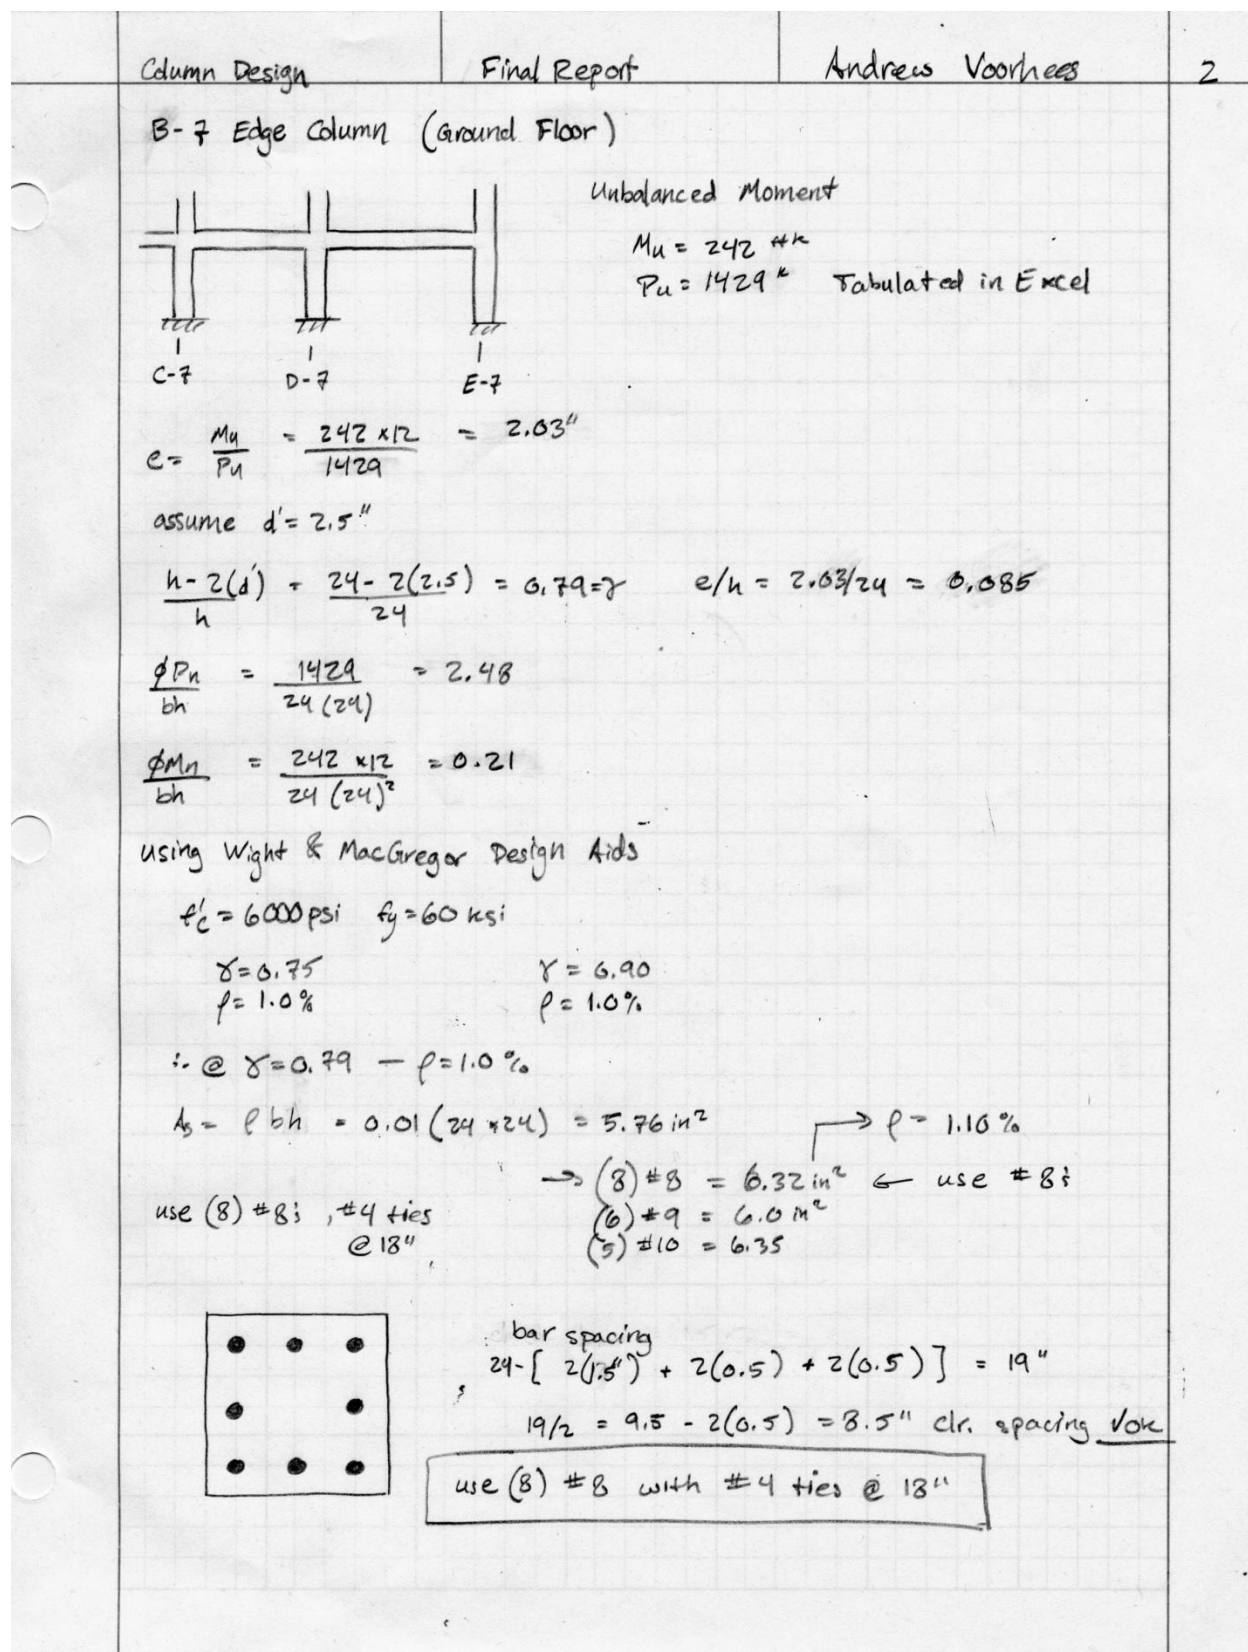 Column Design Final Report Andrew Voorhees 2
B-7 Edge Column (Ground Floor)
Unbalanced Moment
Mu = 242 ftk
Pu = 1429 k Tabulated in Excel
C-7 D-7 E-7
e = Mu/Pu = 242 x12/1429 = 2.03"
assume d' = 2.5"
h - 2(d')/h = 24 - 2(2.5)/24 = 0.79 = γ e/h = 2.03/24 = 0.085
φPn/bh = 1429/24(24) = 2.48
φMn/bh = 242 x12/24(24)² = 0.21
using Wight & MacGregor Design Aids
f'c = 6000 psi fy = 60 ksi
γ = 0.75 γ = 0.90
ρ = 1.0% ρ = 1.0%
∴ @ γ = 0.79 - ρ = 1.0%
As = ρbh = 0.01(24 x 24) = 5.76 in² → ρ = 1.10%
→ (8) #8 = 6.32 in² ← use #8s
use (8) #8s, #4 ties (6) #9 = 6.0 in²
@ 18" (5) #10 = 6.35
bar spacing
24 - [2(1.5") + 2(0.5) + 2(0.5)] = 19"
19/2 = 9.5 - 2(0.5) = 8.5" clr. spacing √ok
use (8) #8 with #4 ties @ 18"